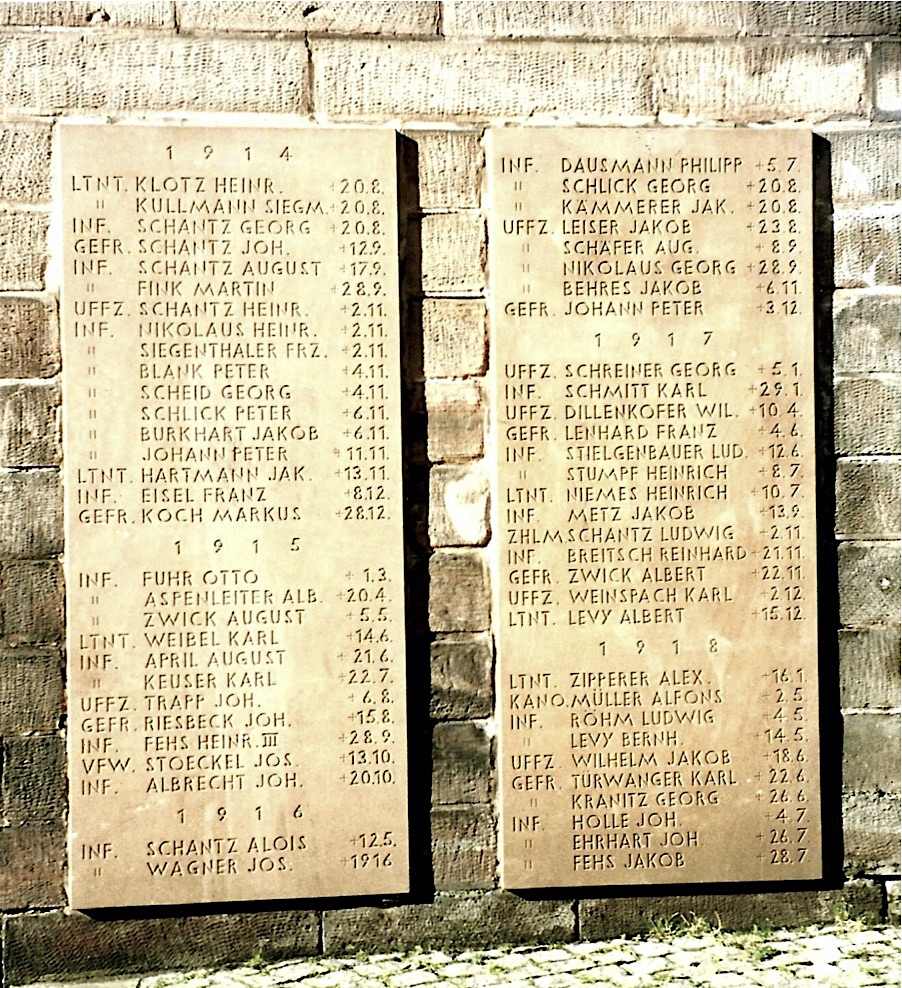 1914
LTNT. KLOTZ HEINR. +20.8.
" KULLMANN SIEGM. +20.8.
INF. SCHANTZ GEORG +20.8.
GEFR. SCHANTZ JOH. +12.9.
INF. SCHANTZ AUGUST +17.9.
" FINK MARTIN +28.9.
UFFZ. SCHANTZ HEINR. +2.11.
INF. NIKOLAUS HEINR. +2.11.
" SIEGENTHALER FRZ. +2.11.
" BLANK PETER +4.11.
" SCHEID GEORG +4.11.
" SCHLICK PETER +6.11.
" BURKHART JAKOB +6.11.
" JOHANN PETER +11.11.
LTNT. HARTMANN JAK. +13.11.
INF. EISEL FRANZ +8.12.
GEFR. KOCH MARKUS +28.12.
1915
INF. FUHR OTTO +1.3.
" ASPENLEITER ALB. +20.4.
" ZWICK AUGUST +5.5.
LTNT. WEIBEL KARL +14.6.
INF. APRIL AUGUST +21.6.
" KEUSER KARL +22.7.
UFFZ. TRAPP JOH. +6.8.
GEFR. RIESBECK JOH. +15.8.
INF. FEHS HEINR. III +28.9.
VFW. STOECKEL JOS. +13.10.
INF. ALBRECHT JOH. +20.10.
1916
INF. SCHANTZ ALOIS +12.5.
" WAGNER JOS. +1916
INF. DAUSMANN PHILIPP +5.7.
" SCHLICK GEORG +20.8.
" KÄMMERER JAK. +20.8.
UFFZ. LEISER JAKOB +23.8.
" SCHÄFER AUG. +8.9.
" NIKOLAUS GEORG +28.9.
" BEHRES JAKOB +6.11.
GEFR. JOHANN PETER +3.12.
1917
UFFZ. SCHREINER GEORG +5.1.
INF. SCHMITT KARL +29.1.
UFFZ. DILLENKOFER WIL. +10.4.
GEFR. LENHARD FRANZ +4.6.
INF. STIELGENBAUER LUD. +12.6.
" STUMPF HEINRICH +8.7.
LTNT. NIEMES HEINRICH +10.7.
INF. METZ JAKOB +13.9.
ZHLM SCHANTZ LUDWIG +2.11.
INF. BREITSCH REINHARD +21.11.
GEFR. ZWICK ALBERT +22.11.
UFFZ. WEINSPACH KARL +2.12.
LTNT. LEVY ALBERT +15.12.
1918
LTNT. ZIPPERER ALEX. +16.1.
KANO. MÜLLER ALFONS +2.5.
INF. RÖHM LUDWIG +4.5.
" LEVY BERNH. +14.5.
UFFZ. WILHELM JAKOB +18.6.
GEFR. TÜRWANGER KARL +22.6.
" KRANITZ GEORG +26.6.
INF. HOLLE JOH. +4.7.
" EHRHART JOH. +26.7.
" FEHS JAKOB +28.7.